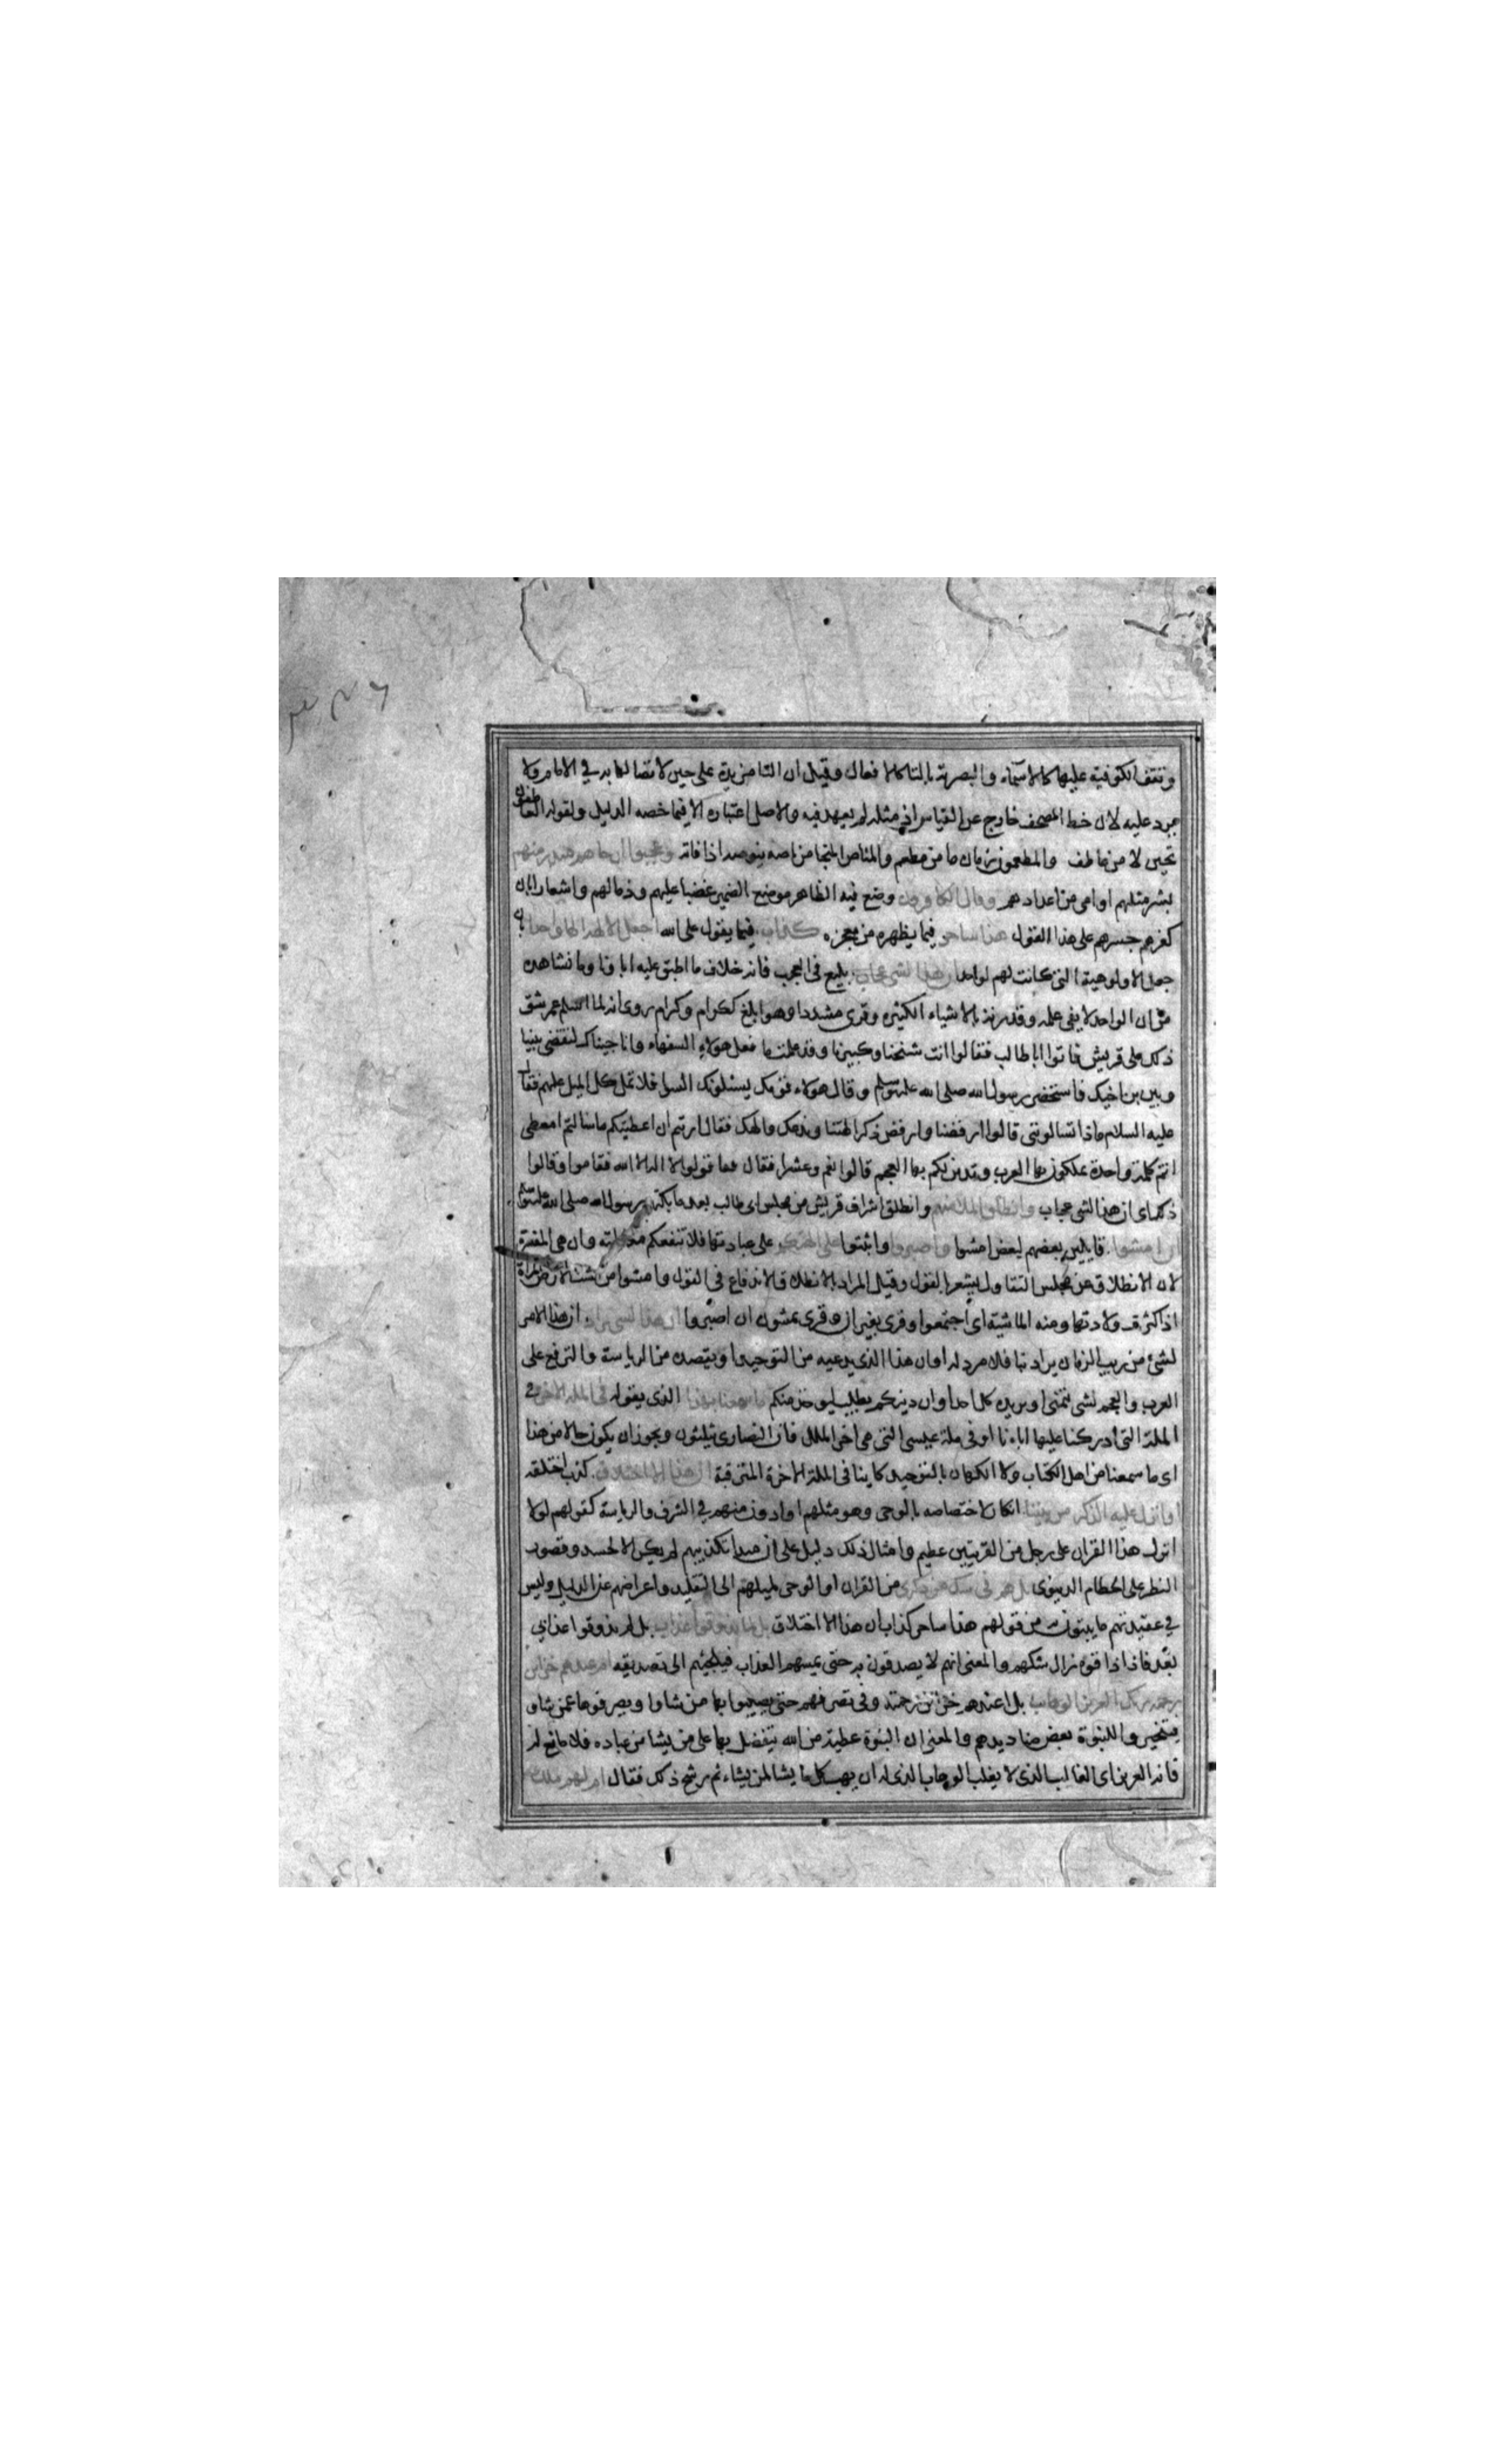 وتقف الكوفية عليها كالاسماء والبصرية بالتا كالافعال وقيل ان التا مزيدة على حين لاتصالها به في الامام ولا
يرد عليه لان خط المصحف خارج عن القياس اذ مثله لم يعهد فيه والاصل اعتباره الا فيما خصه الدليل ولقوله العاطفون
تحين لا من عاطف والمطعمون زمان ما من مطعم والمناص المنجا من ناصه ينوصه اذا فاته وعجبوا ان جاءهم منذر منهم
بشر مثلهم او امي من اعدادهم وقال الكافرون وضع فيه الظاهر موضع الضمير غضبا عليهم وذما لهم واشعارا بان
كفرهم جسرهم على هذا القول هذا ساحر فيما يظهره من معجزه كذاب فيما يقول على الله اجعل الالهة الها واحدا بان
جعل الالوهية التي كانت لهم لواحد ان هذا لشي عجاب بليغ في العجب فانه خلاف ما اطبق عليه اباونا وما نشاهده
من ان الواحد لا يفي علمه وقدرته بالاشياء الكثيره وقرى مشددا وهو ابلغ ككرام وكرام روى انه لما اسلم عمر شق
ذلك على قريش فاتوا ابا طالب فقالوا انت شيخنا وكبيرنا وقد علمت ما فعل هولاء السفهاء وانا جيناك لتقضى بيننا
وبين بن اخيك فاستحضر رسول الله صلى الله عليه وسلم وقال هولاء قومك يسئلونك السوا فلا تمل كل الميل عليهم فقال
عليه السلام ماذا تسالونني قالوا ارفضنا وارفض ذكر الهتنا وندعك والهك فقال ارتم ان اعطيتكم ما سالتم امعطى
انتم كلمة واحدة تملكون بها العرب وتدين لكم بها العجم قالوا نعم وعشرا فقال قولوا لا اله الا الله فقاموا وقالوا
ذلك اي ان هذا لشي عجاب وانطلق الملا منهم وانطلق اشراف قريش من مجلس ابي طالب بعد ما بكتهم رسول الله صلى الله عليه وسلم
ان امشوا قايلين بعضهم لبعض امشوا واصبروا واثبتوا على الهتكم على عبادتها فلا تنفعكم مكالمته وان هي المفسرة
لان الانطلاق عن مجلس التقاول يشعر بالقول وقيل المراد بالانطلاق الاندفاع في القول وامشوا من مشت المراة
اذا كثرت ولادتها ومنه الماشية اي اجتمعوا وقرى بغير ان وقرى يمشون ان اصبروا ان هذا لشي يراد ان هذا الامر
لشئ من ريب الزمان يراد بنا فلا مرد له او ان هذا الذي يدعيه من التوحيد او يقصده من الرياسة والترفع على
العرب والعجم لشي يتمنى او يريده كل احد او ان دينكم يطلب ليوخذ منكم ما سمعنا بهذا الذي يقوله في الملة الاخرة في
الملة التي ادركنا عليها اباءنا او في ملة عيسى التي هي اخر الملل فان النصارى يثلثون ويجوز ان يكون حالا من هذا
اي ما سمعنا من اهل الكتاب ولا الكهان بالتوحيد كاينا في الملة الاخرة المترقبة ان هذا الا اختلاق كذب اختلقه
اوانزل عليه الذكر من بيننا انكار لاختصاصه بالوحى وهو مثلهم او ادون منهم في الشرف والرياسة كقولهم لولا
انزل هذا القران على رجل من القريتين عظيم وامثال ذلك دليل على ان مبدا تكذيبهم لم يكن الا الحسد وقصور
النظر على الحطام الدنيوى بل هم في شك من ذكرى من القران او الوحى لميلهم الى التقليد واعراضهم عن الدليل وليس
في عقيدتهم ما يبتون به من قولهم هذا ساحر كذاب ان هذا الا اختلاق بل لما يذوقوا عذاب بل لم يذوقوا عذابي
بعد فاذا ذاقوه زال شكهم والمعنى انهم لا يصدقون به حتى يمسهم العذاب فيلجئهم الى تصديقه ام عندهم خزاين
رحمة ربك العزيز الوهاب بل اعندهم خزائن رحمته وفي تصرفهم حتى يصيبوا بها من شاوا ويصرفوها عمن شاوا
فيتخيروا للنبوة بعض صناديدهم والمعنى ان النبوة عطية من الله يتفضل بها على من يشا من عباده فلا مانع له
فانه العزيز اي الغالب الذي لا يغلب الوهاب الذي له ان يهب كل ما يشا لمن يشاء ثم رشح ذلك فقال ام لهم ملك